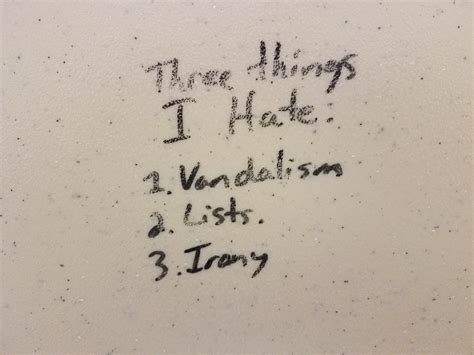 Three things
I Hate:
1. Vandalism
2. Lists.
3. Irony